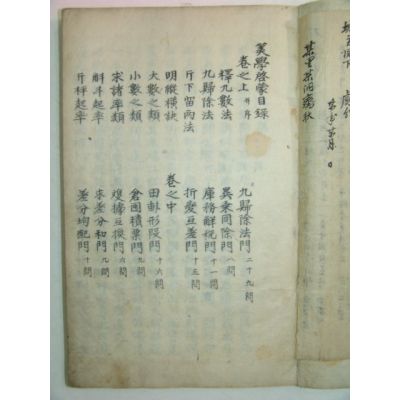 筭學啓蒙目錄
卷之上
釋九數法
九歸除法
斤下留兩法
明縱橫訣
大數之類
小數之類
求諸率類
斛斗起率
斤秤起率
九歸除法門 二十九問
異乘同除門 八問
庫務解稅門 十一問
折變互差門 十五問
卷之中
田畝形段門 十六問
倉囤積粟門 九問
雙據互換門 六問
求差分和門 九問
差分均配門 十問